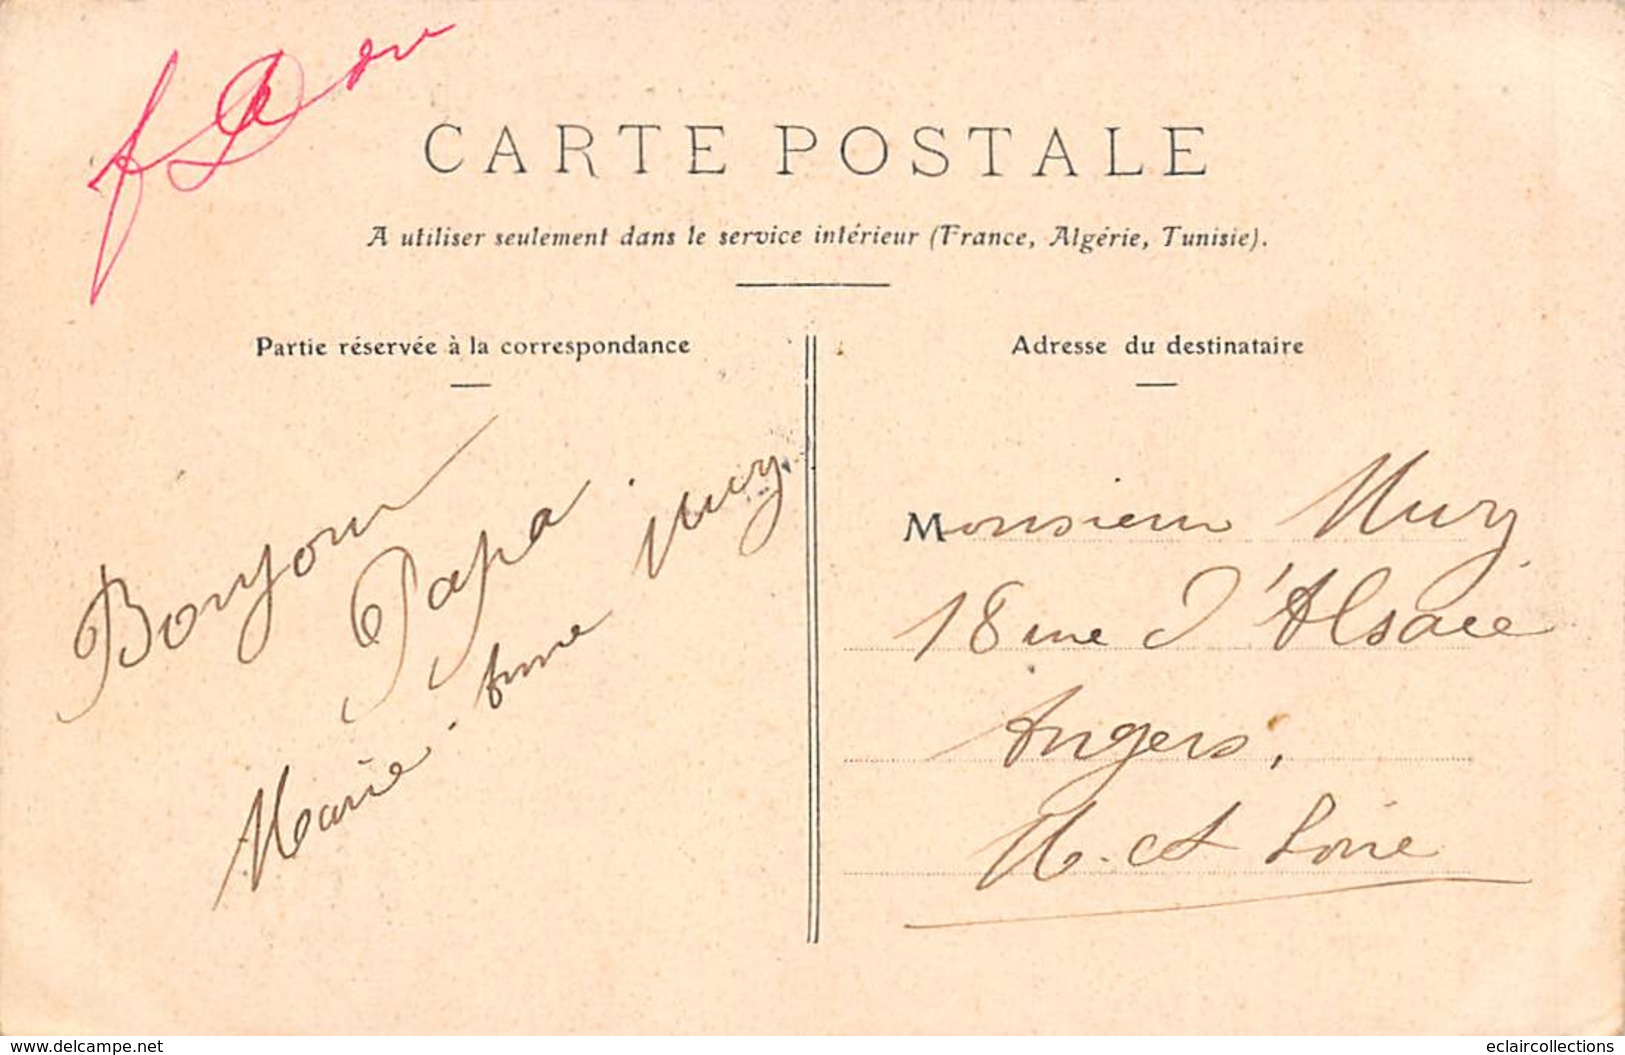 CARTE POSTALE
A utiliser seulement dans le service intérieur (France, Algérie, Tunisie).
Partie réservée à la correspondance
Bonjour
Papa
Marie-Anne
Adresse du destinataire
Monsieur
18 rue d'Alsace
Angers,
M. et Loire
www.delcampe.net
eclaircollections